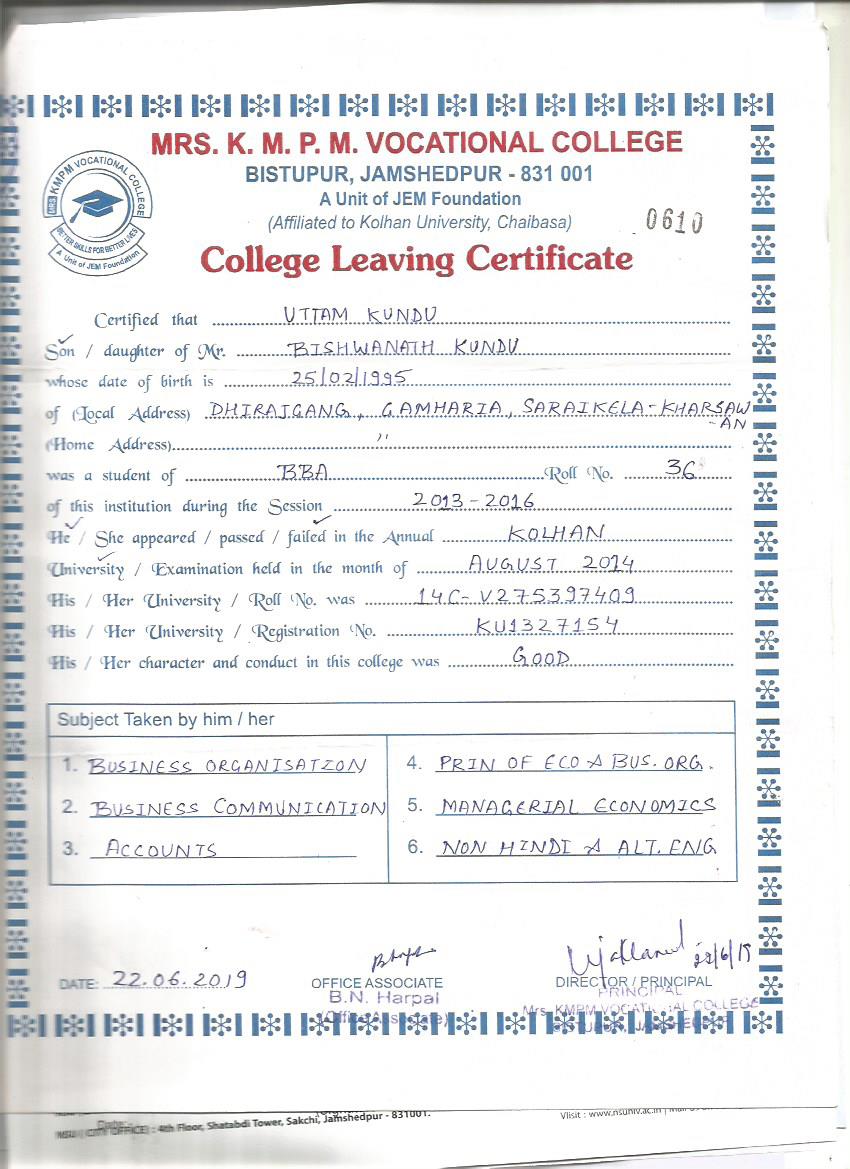 MRS. K. M. P. M. VOCATIONAL COLLEGE
BISTUPUR, JAMSHEDPUR - 831 001
A Unit of JEM Foundation
(Affiliated to Kolhan University, Chaibasa)
0610
MRS KMPM VOCATIONAL COLLEGE
BETTER SKILLS FOR BETTER LIVES
A Unit of JEM Foundation
College Leaving Certificate
Certified that UTTAM KUNDU
Son / daughter of Mr. BISHWANATH KUNDU
whose date of birth is 25/02/1995
of (Local Address) DHIRAJGANG, GAMHARIA, SARAIKELA-KHARSAW
-AN
(Home Address) "
was a student of BBA Roll No. 36
of this institution during the Session 2013-2016
He / She appeared / passed / failed in the Annual KOLHAN
University / Examination held in the month of AUGUST 2014
His / Her University / Roll No. was 14C-V275397409
His / Her University / Registration No. KU1327154
His / Her character and conduct in this college was GOOD
Subject Taken by him / her
1. BUSINESS ORGANISATION
2. BUSINESS COMMUNICATION
3. ACCOUNTS
4. PRIN OF ECO & BUS. ORG.
5. MANAGERIAL ECONOMICS
6. NON HINDI & ALT. ENG
DATE: 22.06.2019
OFFICE ASSOCIATE
B.N. Harpal
(Office Associate)
DIRECTOR / PRINCIPAL
PRINCIPAL
Mrs. KMPM VOCATIONAL COLLEGE
BISTUPUR, JAMSHEDPUR
NSU (CITY OFFICE) : 4th Floor, Shatabdi Tower, Sakchi, Jamshedpur - 831001.
Visit : www.nsuniv.ac.in